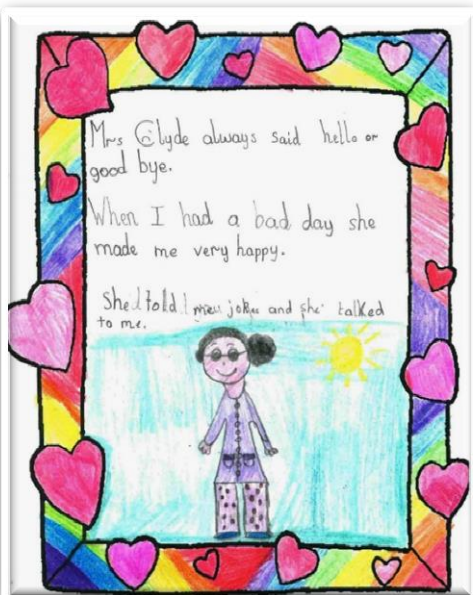 Mrs Clyde always said hello or
good bye.
When I had a bad day she
made me very happy.
She told me jokes and she talked
to me.